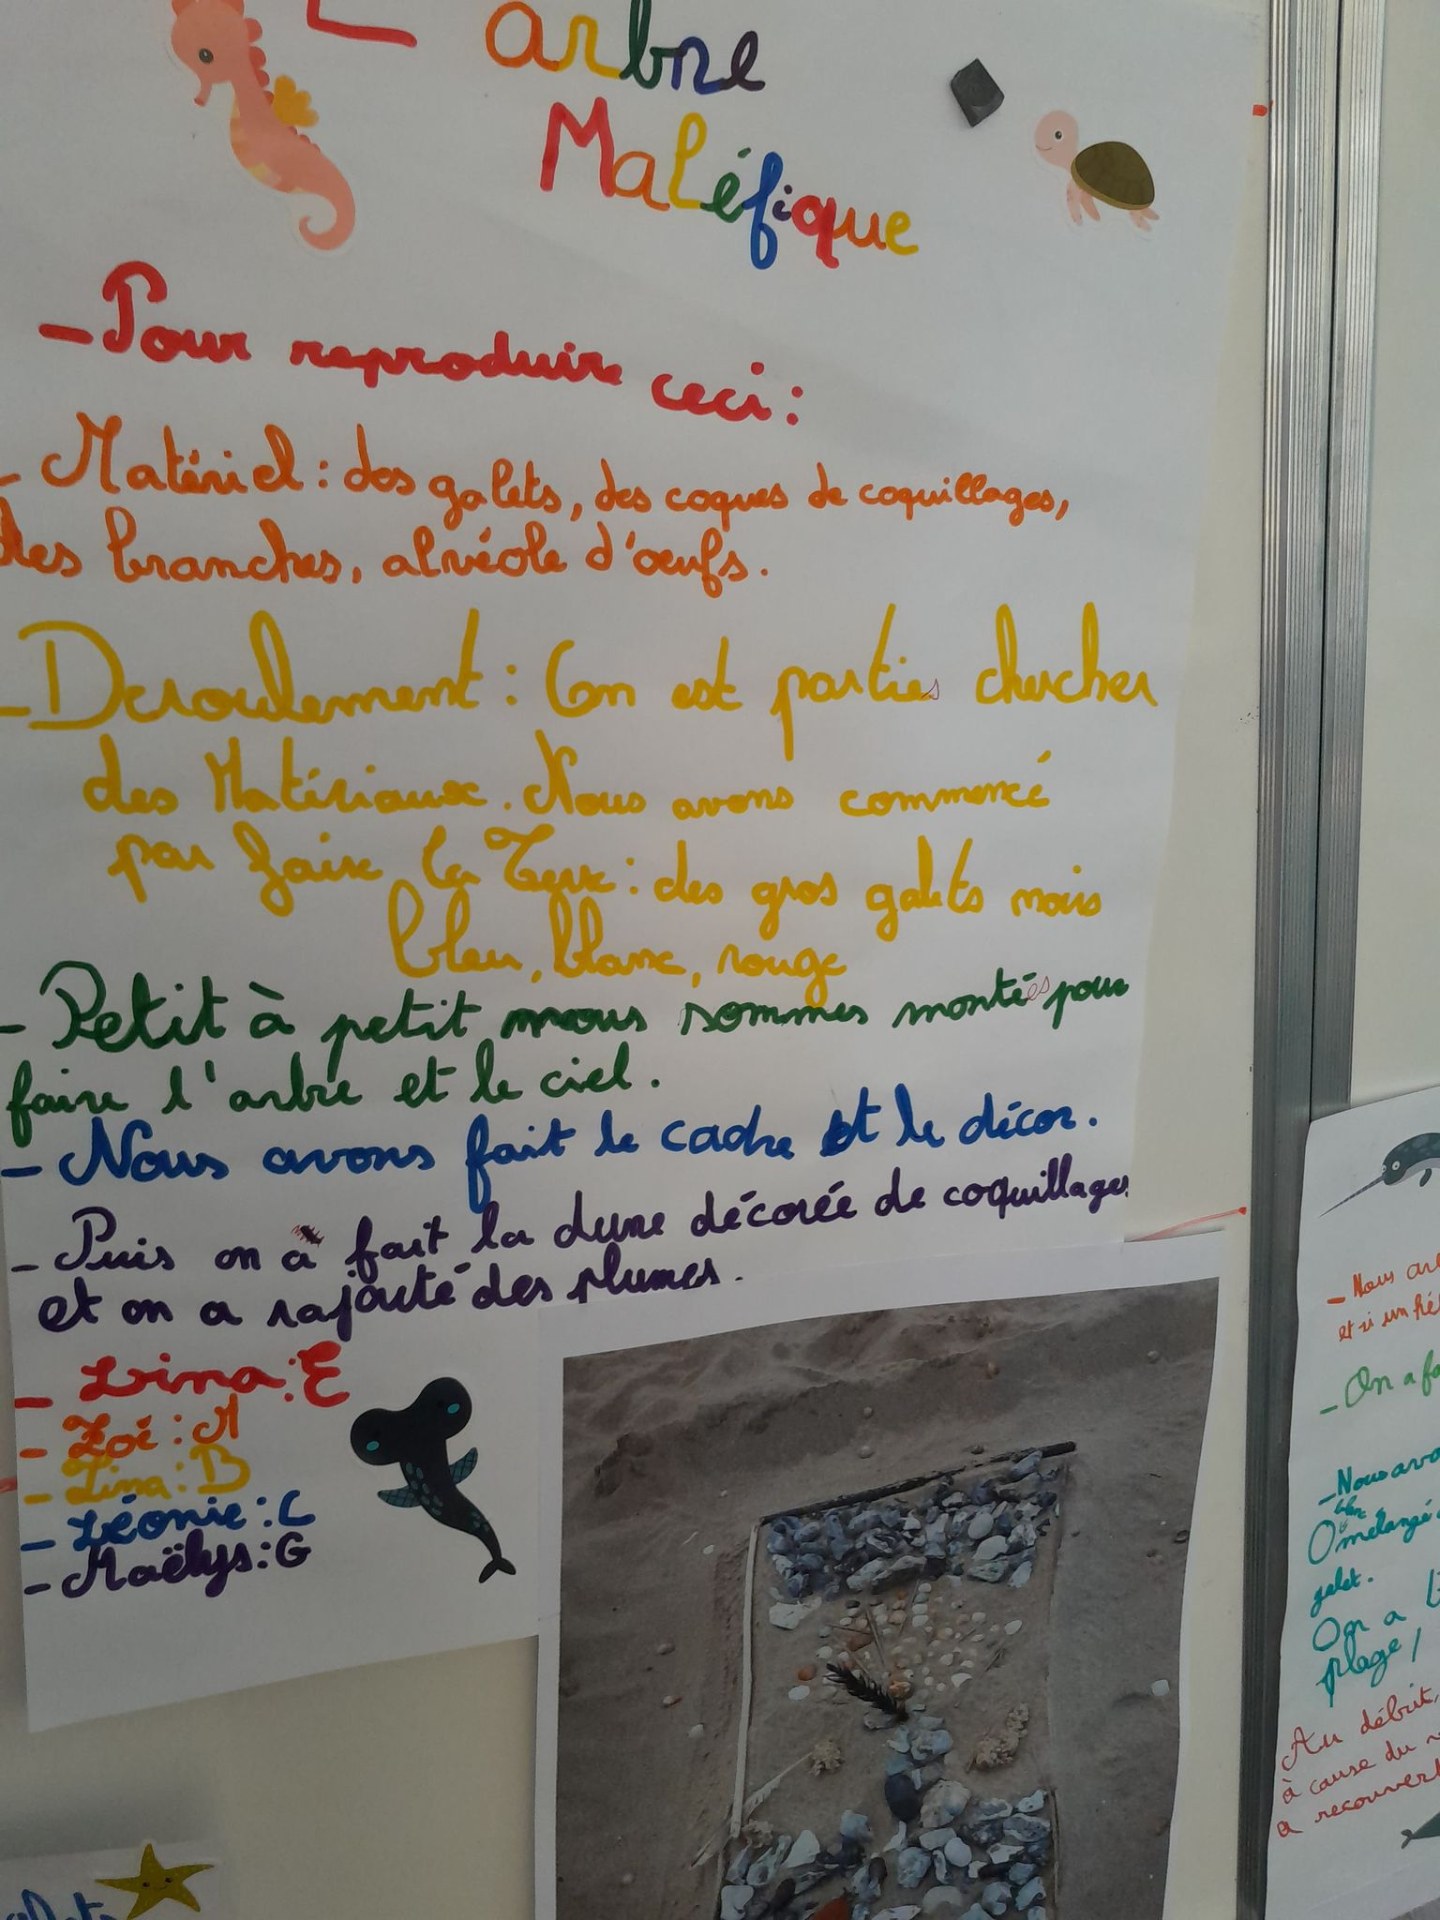 L'arbre
Maléfique
- Pour reproduire ceci :
- Matériel : des galets, des coques de coquillages,
des branches, alvéole d'œufs.
- Deroulement : On est parties chercher
des Matériaux. Nous avons commencé
par faire la Terre : des gros galets noirs
bleu, blanc, rouge
- Petit à petit nous sommes montées pour
faire l'arbre et le ciel.
- Nous avons fait le cadre et le décor.
- Puis on a fait la dune décorée de coquillages
et on a rajouté des plumes.
- Lina : E
- Zoé : M
- Lina : B
- Léonie : C
- Maëlys : G
- Nous
et si un
- On a
- Nous
mélangé
galet.
On a
plage,
Au début,
à cause du
a